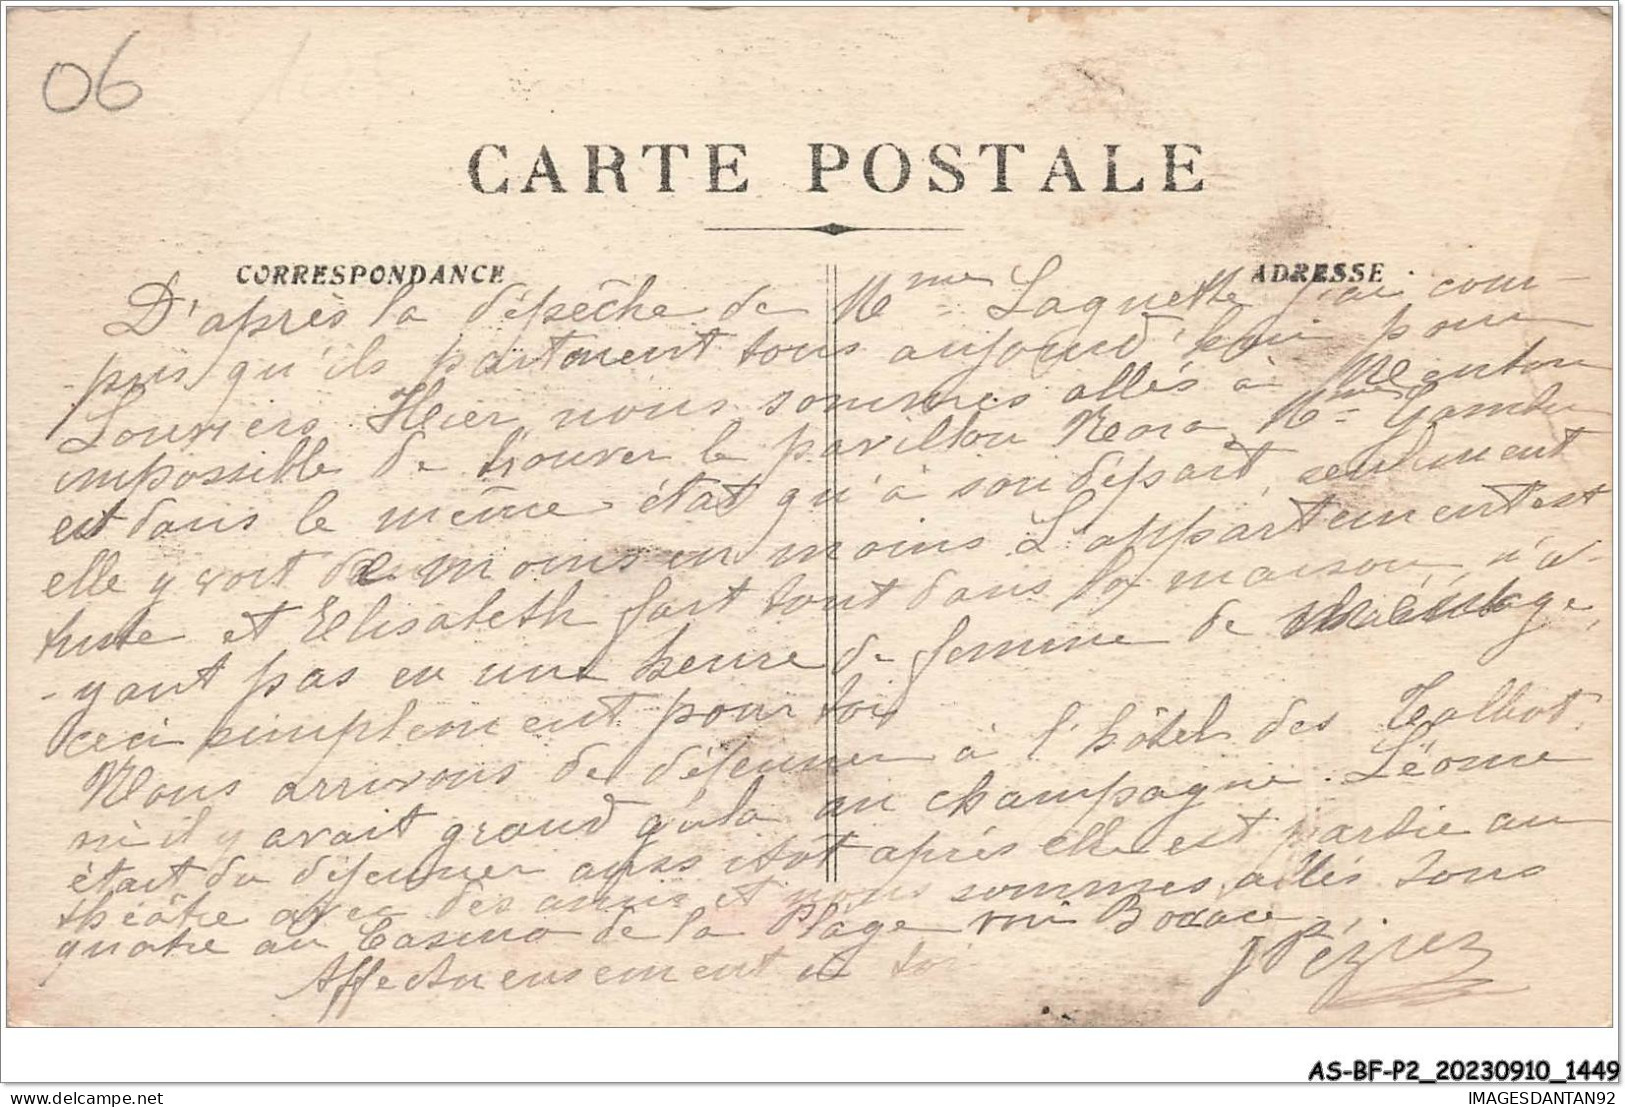 06
CARTE POSTALE
CORRESPONDANCE
ADRESSE
D'après la dépêche de Mme Laguette j'ai com-
pris qu'ils partaient tous aujourd'hui pour
Louviers. Hier nous sommes allés à Menton
impossible de trouver le pavillon Nora, Mme
est dans le même état qu'à son départ, seulement
elle y voit de moins en moins L'appartement est
triste et Elisabeth fait tout dans la maison, n'a-
-yant pas eu une heure de femme de ménage,
ceci simplement pour toi
Nous arrivons de déjeuner à l'hôtel des Talbot
où il y avait grand gala au champagne. Léonie
était du déjeuner aussitôt après elle est partie au
théâtre avec des amis et nous sommes allés tous
quatre au Casino de la Plage voir Bocace
Affectueusement à toi
AS-BF-P2_20230910_1449
IMAGESDANTAN92